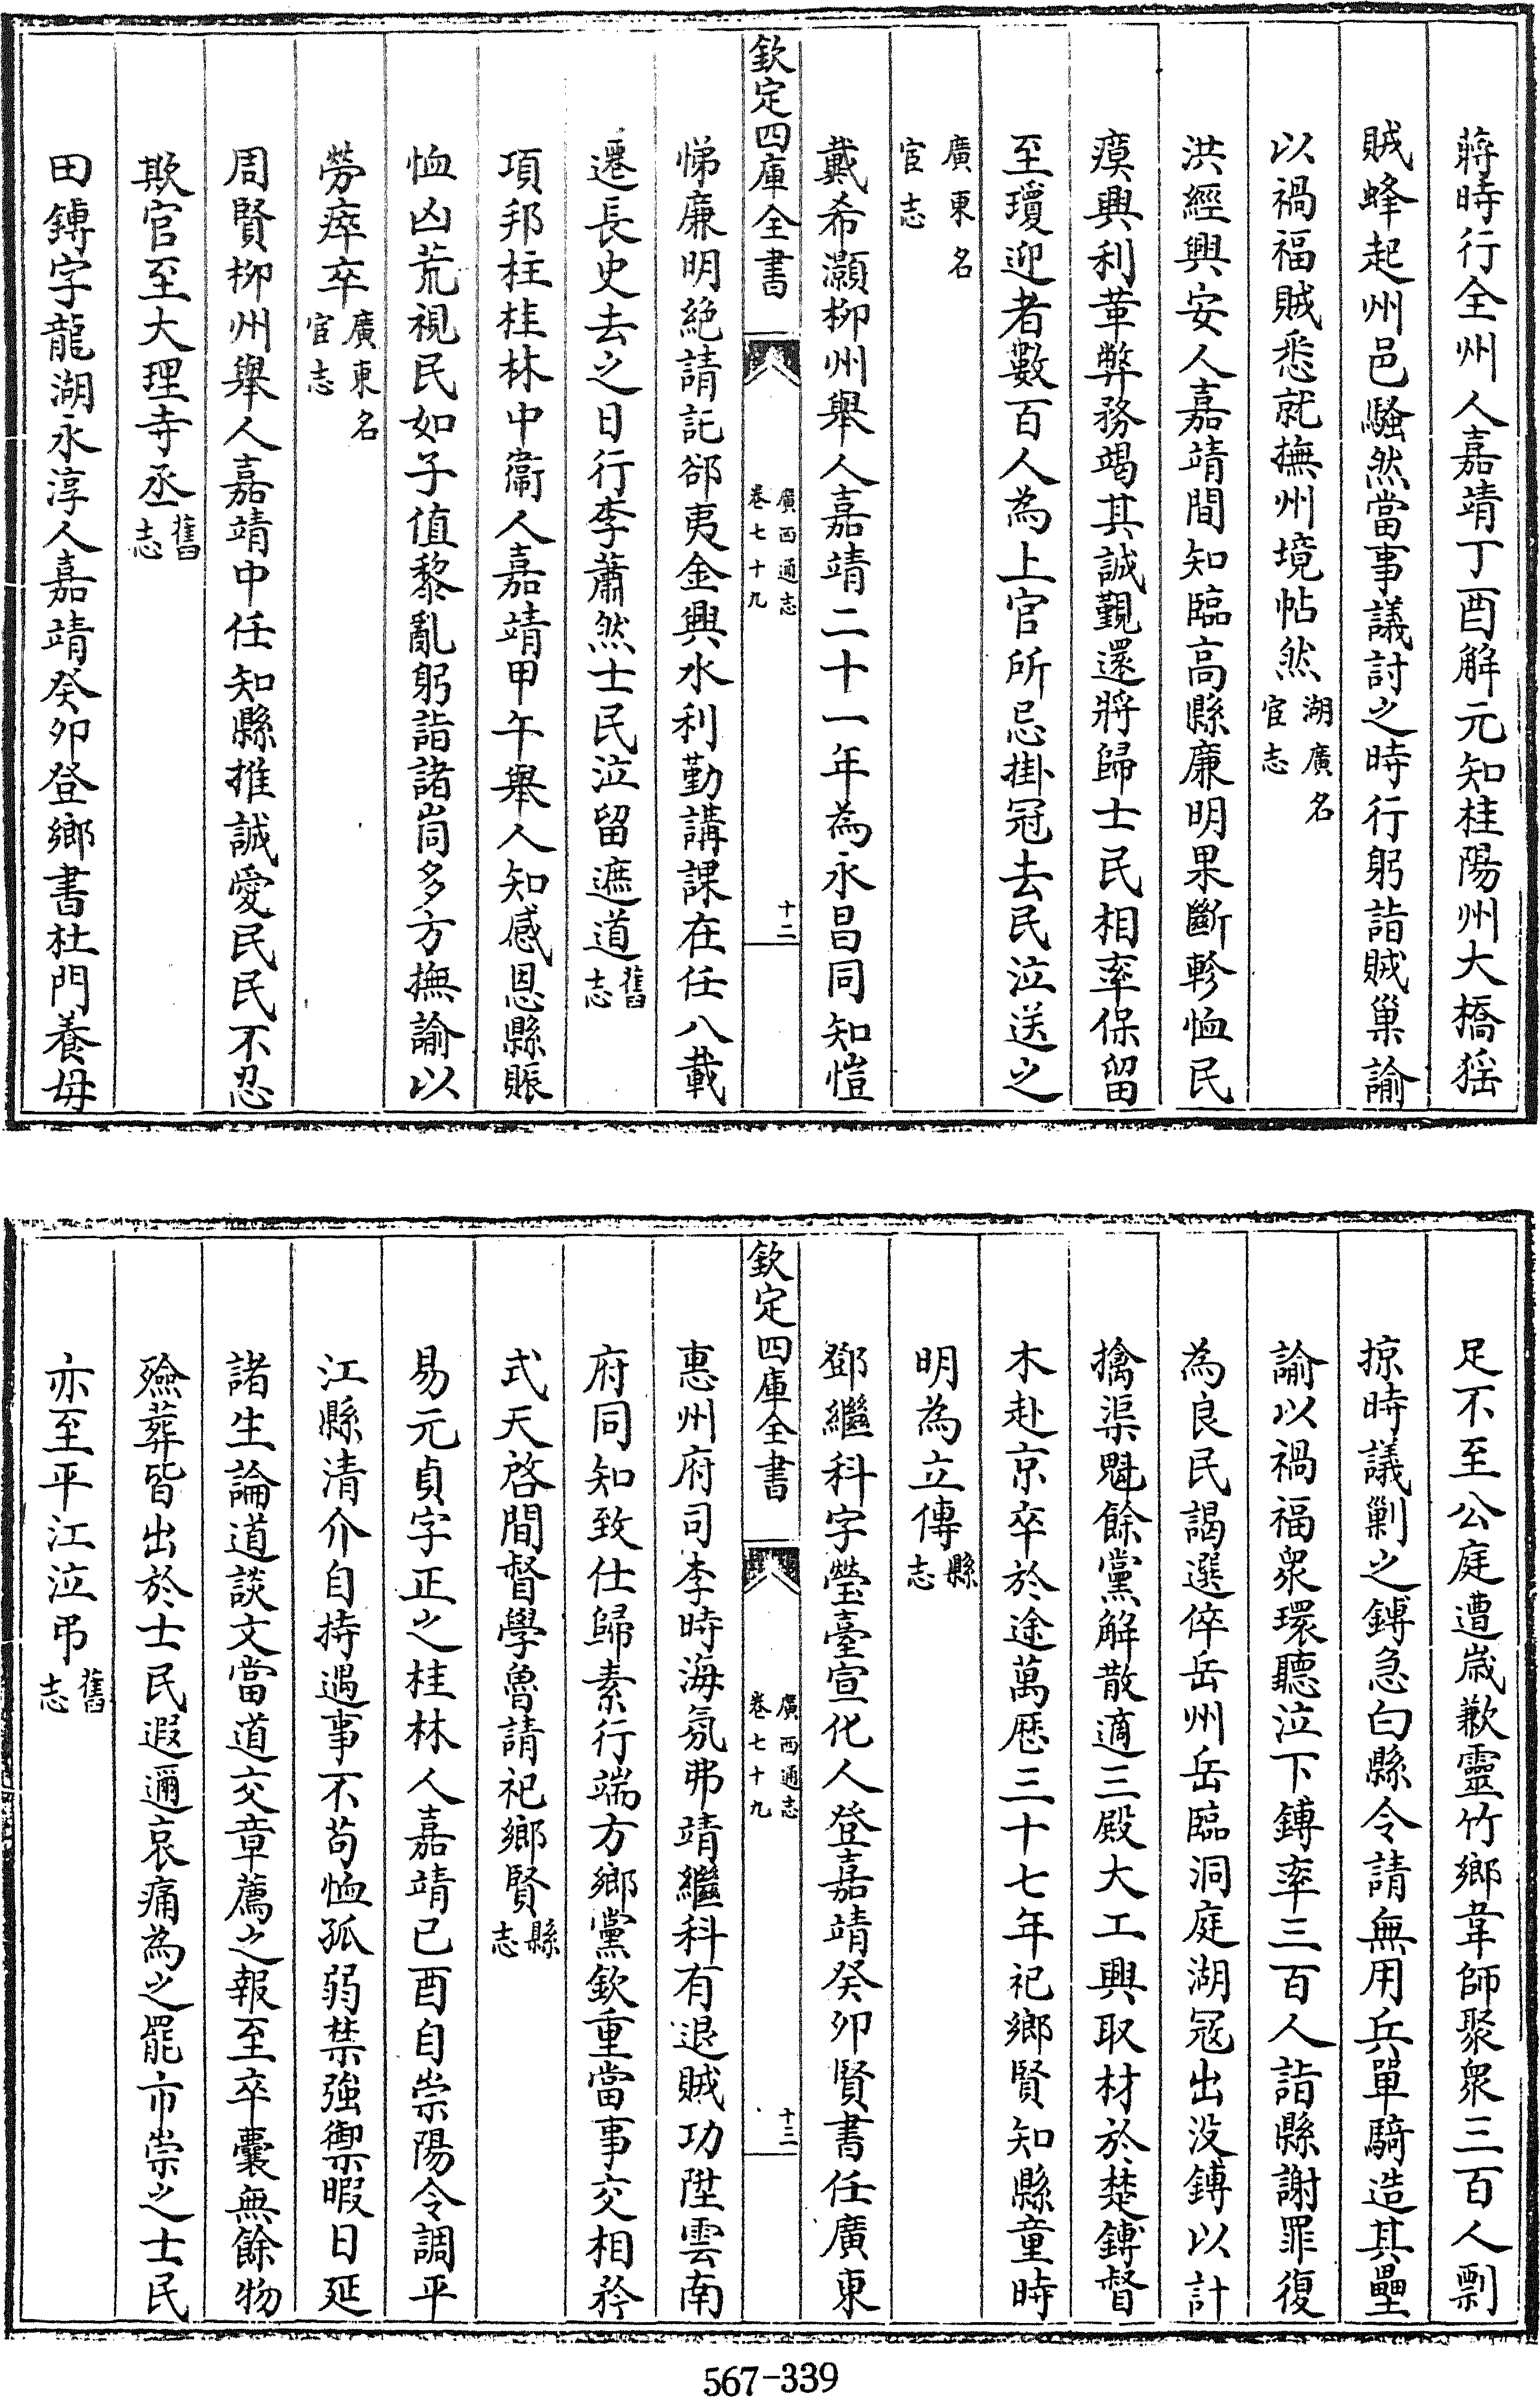 蔣時行全州人嘉靖丁酉解元知桂陽州大橋猺
賊蜂起州邑騷然當事議討之時行躬詣賊巢諭
以禍福賊悉就撫州境帖然湖廣名宦志
洪經興安人嘉靖間知臨高縣廉明果斷軫恤民
瘼興利革弊務竭其誠覲還將歸士民相率保留
至瓊迎者數百人為上官所忌掛冠去民泣送之
廣東名宦志
戴希灝柳州舉人嘉靖二十一年為永昌同知愷
欽定四庫全書
廣西通志
卷七十九
十二
悌廉明絶請託郤夷金興水利勤講課在任八載
遷長史去之日行李蕭然士民泣留遮道舊志
項邦柱桂林中衛人嘉靖甲午舉人知感恩縣賑
恤凶荒視民如子值黎亂躬詣諸峝多方撫諭以
勞瘁卒廣東名宦志
周賢柳州舉人嘉靖中任知縣推誠愛民民不忍
欺官至大理寺丞舊志
田鎛字龍湖永淳人嘉靖癸卯登鄉書杜門養母
足不至公庭遭歲歉靈竹鄉韋師聚衆三百人剽
掠時議剿之鎛急白縣令請無用兵單騎造其壘
諭以禍福衆環聽泣下鎛率三百人詣縣謝罪復
為良民謁選倅岳州岳臨洞庭湖冦出没鎛以計
擒渠魁餘黨解散適三殿大工興取材於楚鎛督
木赴京卒於途萬厯三十七年祀鄉賢知縣童時
明為立傳縣志
鄧繼科字瑩臺宣化人登嘉靖癸卯賢書任廣東
欽定四庫全書
廣西通志
卷七十九
十三
惠州府司李時海氛弗靖繼科有退賊功陞雲南
府同知致仕歸素行端方鄉黨欽重當事交相矜
式天啓間督學魯請祀鄉賢縣志
易元貞字正之桂林人嘉靖已酉自崇陽令調平
江縣清介自持遇事不苟恤孤弱禁強禦暇日延
諸生論道談文當道交章薦之報至卒囊無餘物
殮葬皆出於士民遐邇哀痛為之罷市崇之士民
亦至平江泣弔舊志
567-339